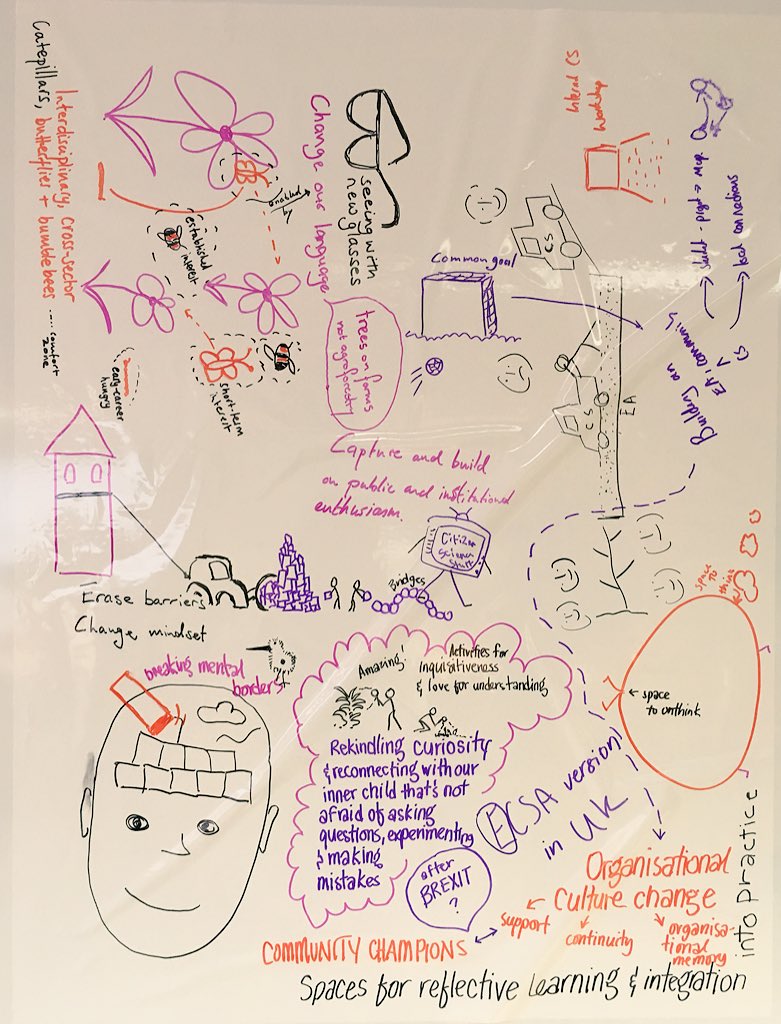 Interdisciplinary, cross-sector
Catepillars, butterflies + bumblebees
.... comfort
zone
enabled
by
established
interest
short-term
interest
early-career
hungry
Change our language
seeing with
new glasses
trees on farms
not agroforestry
Common goal
Internal CS
workshop
CS
CS
EA
Building an
EA; community
CS
bad connections
Capture and build
on public and institutional
enthusiasm.
Citizen
Science
Stuff
Bridges
Erase barriers
Change mindset
breaking mental
borders
Amazing!
Activities for
inquisitiveness
& love for understanding
Rekindling curiosity
& reconnecting with our
inner child that's not
afraid of asking
questions, experimenting
& making
mistakes
space
to
think
← space
to unthink
ECSA version
in UK
after
BREXIT
?
Organisational
Culture change
support
continuity
organisa-
tional
memory
COMMUNITY CHAMPIONS
Spaces for reflective learning & integration
into practice